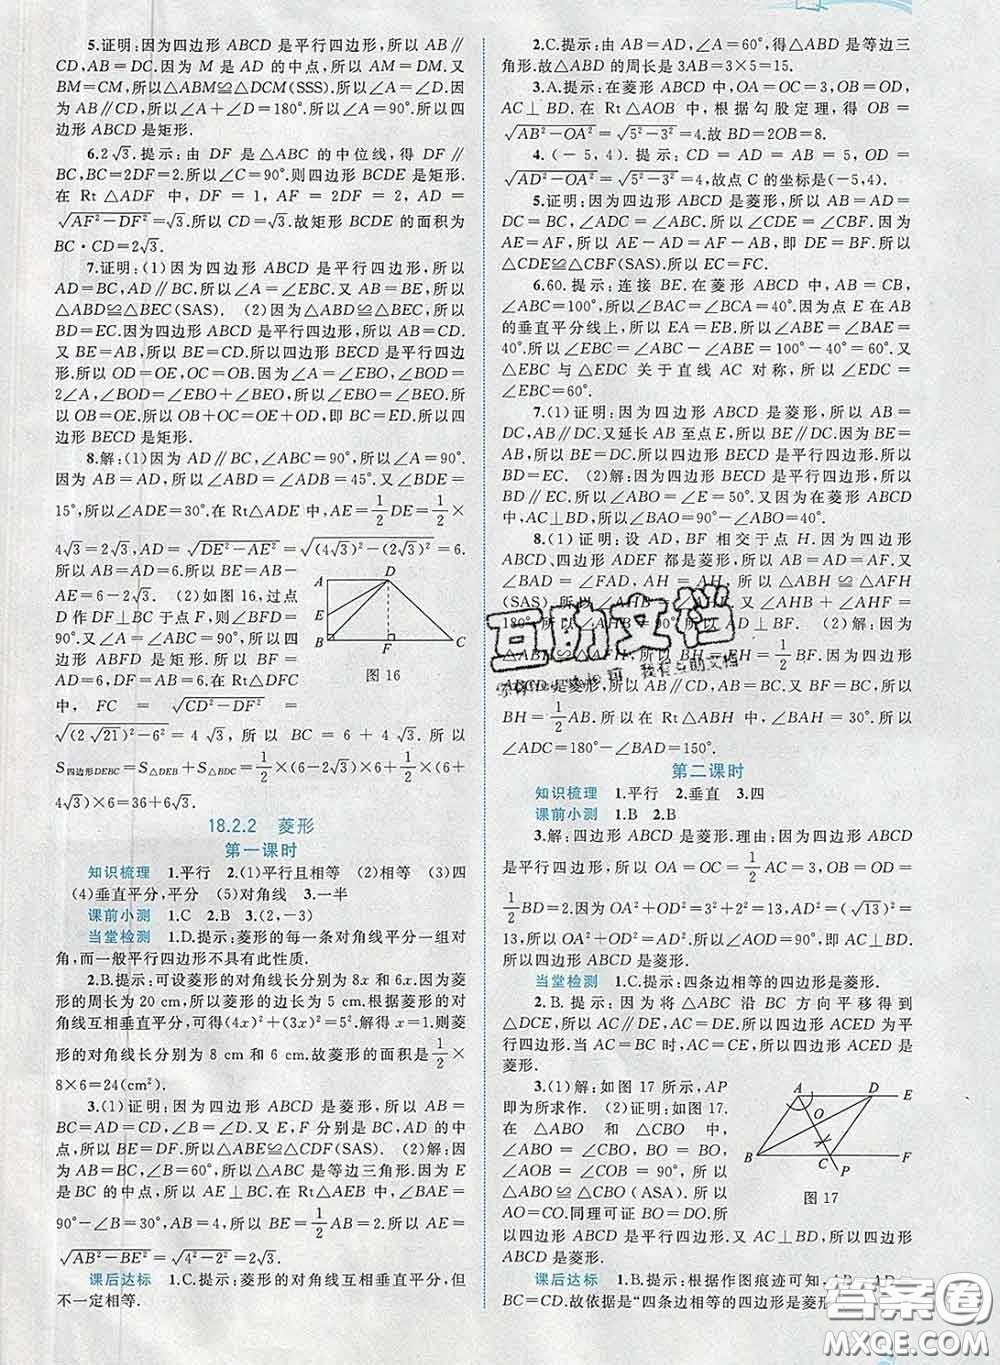 5.证明:因为四边形 ABCD 是平行四边形,所以 AB∥
CD,AB=CD.因为 M 是 AD 的中点,所以 AM=DM.又
BM=CM,所以△ABM≌△DCM(SSS).所以∠A=∠D.
因为 AB∥CD,所以∠A+∠D=180°.所以∠A=90°.所以四
边形 ABCD 是矩形.
6.2√3.提示:由 DF 是△ABC 的中位线,得 DF∥
BC,BC=2DF=2.所以∠C=90°.则四边形 BCDE 是矩形.
在 Rt△ADF 中, DF=1, AF=2DF=2, AD=
√(AF²-DF²)=√3.所以 CD=√3.故矩形 BCDE 的面积为
BC·CD=2√3.
7.证明:(1)因为四边形 ABCD 是平行四边形,所以
AD=BC,AD∥BC.所以∠A=∠EBC.又 AB=BE,所以
△ABD≌△BEC(SAS). (2)因为△ABD≌△BEC,所以
BD=EC.因为四边形 ABCD 是平行四边形,所以 AB=CD.
又 BE=AB,所以 BE=CD.所以四边形 BECD 是平行四边
形.所以 OD=OE,OC=OB.因为∠A=∠EBC,∠BOD=
2∠A,∠BOD=∠EBO+∠BEO,所以∠EBO=∠BEO.所
以 OB=OE.所以 OB+OC=OE+OD,即 BC=ED.所以四
边形 BECD 是矩形.
8.解:(1)因为 AD∥BC,∠ABC=90°,所以∠A=90°.
因为 AB=AD,所以∠ABD=∠ADB=45°.又∠BDE=
15°,所以∠ADE=30°.在 Rt△ADE 中,AE=1/2DE=1/2×
4√3=2√3,AD=√(DE²-AE²)=√((4√3)²-(2√3)²)=6.
所以 AB=AD=6.所以 BE=AB-
AE=6-2√3. (2)如图 16,过点
D 作 DF⊥BC 于点 F,则∠BFD=
90°.又∠A=∠ABC=90°,所以四边
形 ABFD 是矩形.所以 BF=AD=
6,DF=AB=6.在 Rt△DFC
中, FC=√(CD²-DF²)=
√((2√21)²-6²)=4√3,所以 BC=6+4√3.所以
S四边形DEBC=S△DEB+S△BDC=1/2×(6-2√3)×6+1/2×(6+
4√3)×6=36+6√3.
A
D
E
B
F
C
图 16
18.2.2 菱形
第一课时
知识梳理 1.平行 2.(1)平行且相等 (2)相等 (3)四
(4)垂直平分,平分 (5)对角线 3.一半
课前小测 1.C 2.B 3.(2,-3)
当堂检测 1.D.提示:菱形的每一条对角线平分一组对
角,而一般平行四边形不具有此性质.
2.B.提示:可设菱形的对角线长分别为 8x 和 6x.因为菱
形的周长为 20 cm,所以菱形的边长为 5 cm.根据菱形的对
角线互相垂直平分,可得(4x)²+(3x)²=5².解得 x=1.则菱
形的对角线长分别为 8 cm 和 6 cm.故菱形的面积是1/2×
8×6=24(cm²).
3.(1)证明:因为四边形 ABCD 是菱形,所以 AB=BC=
AD=CD,∠B=∠D.又 E,F 分别是 BC,AD 的中
点,所以 BE=DF.所以△ABE≌△CDF(SAS). (2)解:因
为 AB=BC,∠B=60°,所以△ABC 是等边三角形.因为 E
是 BC 的中点,所以 AE⊥BC.在 Rt△AEB 中,∠BAE=
90°-∠B=30°,所以 BE=1/2AB=2.所以 AE=
√(AB²-BE²)=√(4²-2²)=2√3.
课后达标 1.C.提示:菱形的对角线互相垂直平分,但
不一定相等.
2.C.提示:由 AB=AD,∠A=60°,得△ABD 是等边三
角形.故△ABD 的周长是 3AB=3×5=15.
3.A.提示:在菱形 ABCD 中,OA=OC=3,OB=OD,
AC⊥BD.在 Rt△AOB 中,根据勾股定理,得 OB=
√(AB²-OA²)=√(5²-3²)=4.故 BD=2OB=8.
4.(-5,4). 提示:CD=AD=AB=5,OD=
√(AD²-OA²)=√(5²-3²)=4,故点 C 的坐标是(-5,4).
5.证明:因为四边形 ABCD 是菱形,所以 AB=AD=
DC=BC,∠ADC=∠ABC.所以∠CDE=∠CBF.因为
AE=AF,所以 AE-AD=AF-AB,即 DE=BF.所以
△CDE≌△CBF(SAS).所以 EC=FC.
6.60.提示:连接 BE.在菱形 ABCD 中,AB=BC,
∠ABC=100°,所以∠BAC=∠BCA=40°.因为点 E 在 AB
的垂直平分线上,所以 EA=EB,所以∠ABE=∠BAE=
40°.所以∠EBC=∠ABC-∠ABE=100°-40°=60°.又
△EBC 与△EDC 关于直线 AC 对称,所以∠EDC=
∠EBC=60°.
7.(1)证明:因为四边形 ABCD 是菱形,所以 AB=
DC,AB∥DC.又延长 AB 至点 E,使 BE=AB,所以 BE=
AB,所以 BE=DC.所以四边形 BECD 是平行四边形.所以
BD=EC. (2)解:因为四边形 BECD 是平行四边形,所以
BD∥EC.所以∠ABO=∠E=50°.又因为在菱形 ABCD
中,AC⊥BD,所以∠BAO=90°-∠ABO=40°.
8.(1)证明:设 AD,BF 相交于点 H.因为四边形
ABCD、四边形 ADEF 都是菱形,所以 AB=AD=AF.又
∠BAD=∠FAD,AH=AH,所以△ABH≌△AFH
(SAS).所以∠AHB=∠AHF.又∠AHB+∠AHF=
180°,所以∠AHB=∠AHF=90°.所以 AD⊥BF. (2)解:因为
BH=FH=1/2BF.
ABCD 是菱形,所以
BH=1/2AB.所以在 Rt△ABH 中,∠BAH=30°.所以
∠ADC=180°-∠BAD=150°.
第二课时
知识梳理 1.平行 2.垂直 3.四
课前小测 1.B 2.B
3.解:四边形 ABCD 是菱形.理由:因为四边形 ABCD
是平行四边形,所以 OA=OC=1/2AC=3,OB=OD=
1/2BD=2.因为 OA²+OD²=3²+2²=13,AD²=(√13)²=
13,所以 OA²+OD²=AD².所以∠AOD=90°,即 AC⊥BD.
所以四边形 ABCD 是菱形.
当堂检测 1.C.提示:四条边相等的四边形是菱形.
2.B. 提示:因为将△ABC 沿 BC 方向平移得到
△DCE,所以 AC∥DE,AC=DE.所以四边形 ACED 为平
行四边形.当 AC=BC 时,AC=CE,所以四边形 ACED 是
菱形.
3.(1)解:如图 17 所示,AP
即为所求作. (2)证明:如图 17.
在△ABO 和△CBO 中,
∠ABO=∠CBO, BO=BO,
∠AOB=∠COB=90°,所以
△ABO≌△CBO (ASA). 所以
AO=CO.同理可证 BO=DO.所
以四边形 ABCD 是平行四边形.又 AC⊥BD,所以四边形
ABCD 是菱形.
A
D
E
O
B
C
F
P
图 17
课后达标 1.B.提示:根据作图痕迹可知,AB=AD=
BC=CD.故依据是“四条边相等的四边形是菱形
互助文档
答案圈
MXQE.COM